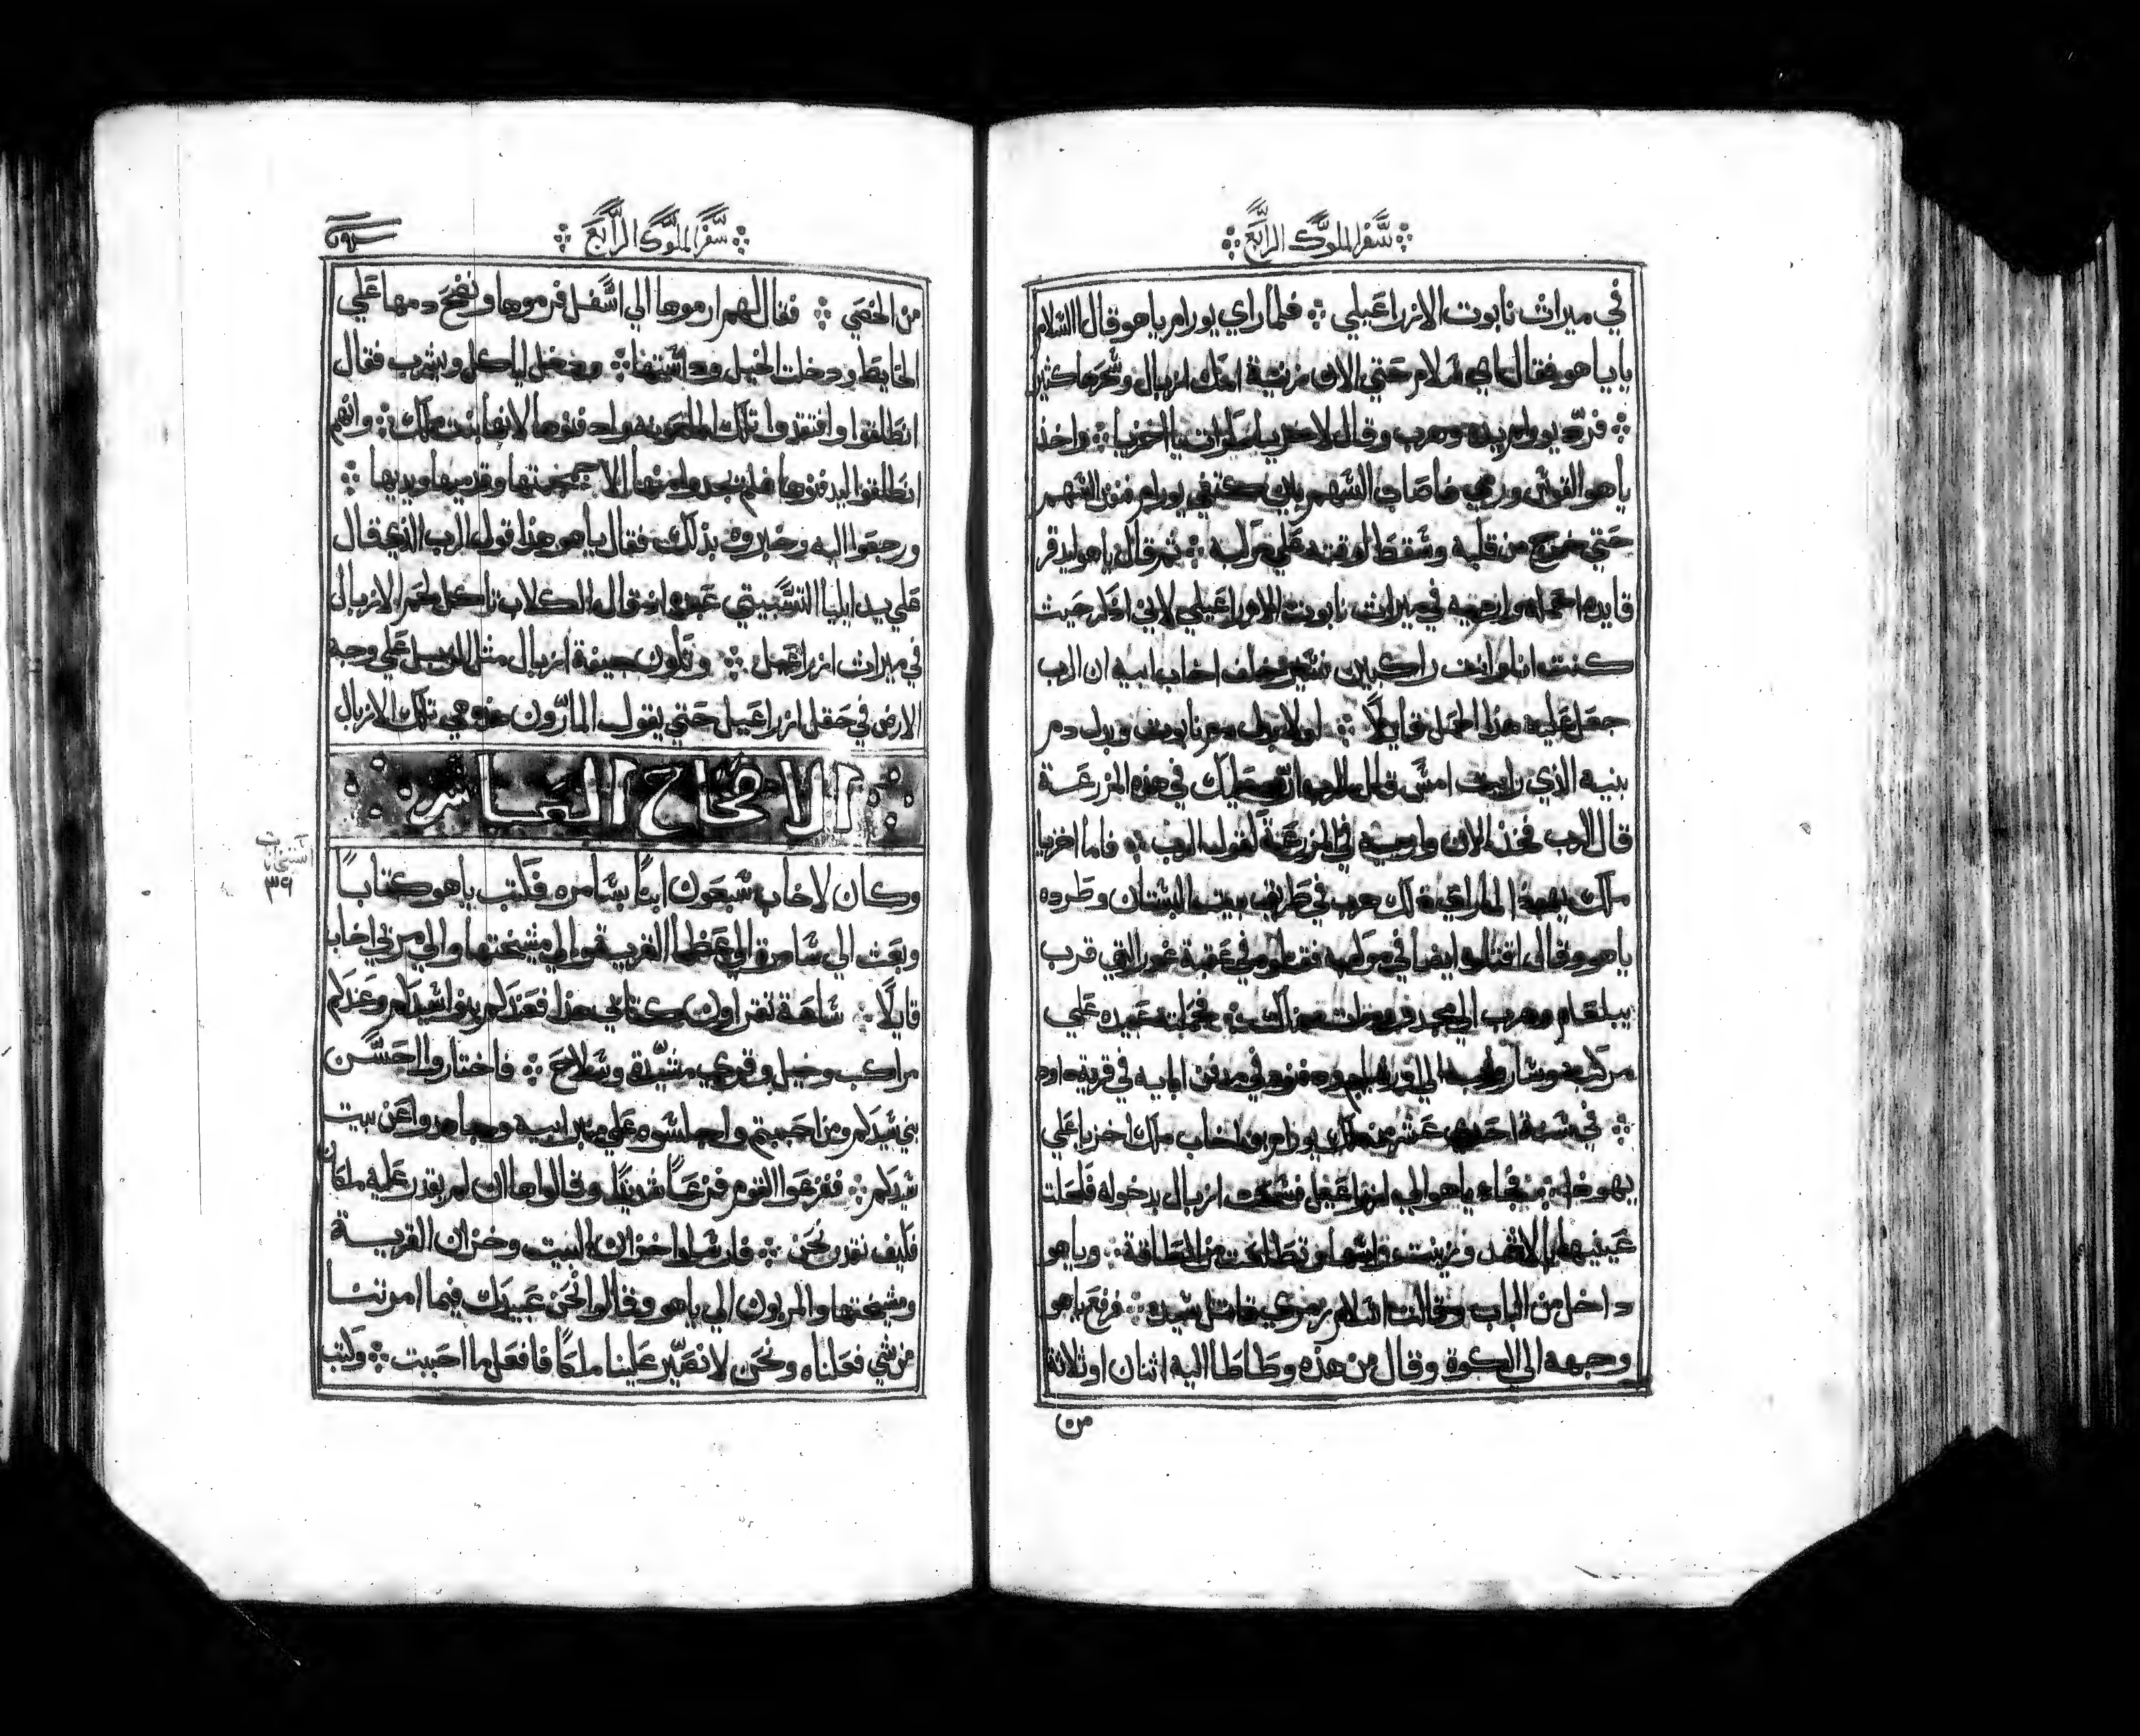 سفر الملوك الرابع
في ميراث نابوت الازراعيلي ؞ فلما راي يورام ياهو قال السلام
يا ياهو فقال اي سلام حتي الان من زنية امك ازبال وسحرها كثير
؞ فرد يورام يده وهرب وقال لاخزيا يا اخزيا ؞ واخذ
ياهو القوس ورمي فاصاب السهم بين كتفي يورام فنفذ السهم
حتي خرج من قلبه وسقط لوقته علي مركبه ؞ ثم قال ياهو لبدقر
قايده احمله وارميه في ميراث نابوت الازراعيلي لاني اذكر حيث
كنت انا وانت راكبين نسير خلف اخاب ابيه ان الرب
جعل عليه هذا الحمل قايلاً ؞ لولا بدل دم نابوت وبدل دم
بنيه الذي رايت امس قال الرب في هذه المزرعة
قال الرب فخذه الان وارميه في المزرعة لقول الرب ؞ فاما اخزيا
ملك يهوذا لما راي ذلك هرب في طريق بيت البستان وطرده
ياهو وقال اقتلوا ايضا في مركبه في عقبة غور التي قرب
يبلعام وهرب الي مجدو ومات هناك ؞ فحملته عبيده علي
مركب الي اورشليم ودفنوه في مدفن ابايه في قرية داود
؞ في سنة احدي عشر من ملك يورام بن اخاب ملك اخزيا علي
يهوذا ؞ فجاء ياهو الي ازراعيل فسمعت ازبال بدخوله فكحلت
عينيها بالاثمد وزينت راسها وتطلعت من الطاقة ؞ وياهو
داخل من الباب وقالت السلام يزمري قاتل سيده ؞ فرفع ياهو
وجهه الي الكوة وقال من هذه وطاطا اليه اثنان او ثلاثة
من
سفر الملوك الرابع
من الخصي ؞ فقال لهم ارموها الي اسفل فرموها ونضح دمها علي
الحايط ودخلت الخيل وداستها ؞ ودخل لياكل ويشرب فقال
انطلقوا وافتقدوا تلك الملعونه وادفنوها لانها بنت ملك ؞ وانهم
انطلقوا ليدفنوها فلم يجدوا منها الا جمجمتها وقدميها ويديها ؞
ورجعوا اليه وخبروه بذلك فقال ياهو هذا قول الرب الذي قال
علي يد ايليا التسبيتي عبده اذ قال الكلاب تاكل لحم الازبال
في ميراث ازراعيل ؞ وتكون جيفة ازبال مثل الزبل علي وجه
الارض في حقل ازراعيل حتي يقول المارون هذه هي تلك الازبال
الاصحاح العاشر
وكان لاخاب سبعون ابناً بسامره فكتب ياهو كتاباً
وبعث الي سامرة الي عظما القرية والي مشيختها والي مربي اخاب
قايلاً ؞ ساعة تقراون كتابي هذا فعندكم بنوا سيدكم وعندكم
مراكب وخيل وقري مشيدة وسلاح ؞ فاختاروا الحسن
بني سيدكم ومن احببتم واجلسوه علي منبر ابيه وجاهدوا عن بيت
سيدكم ؞ ففزعوا القوم فزعاً شديداً وقالوا هاان لم يقدر عليه ملكان
فكيف نقدر نحن ؞ فارسلوا خزان البيت وخزان القرية
ومشيختها والمربون الي ياهو وقالوا نحن عبيدك فيما امرتنا
من شي فعلناه ونحن لا نصير علينا ملكاً فافعل ما احببت ؞ وكتب
٣٩